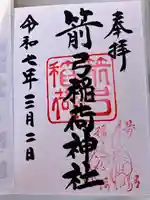 奉拝
箭弓稲荷神社
令和七年三月二日